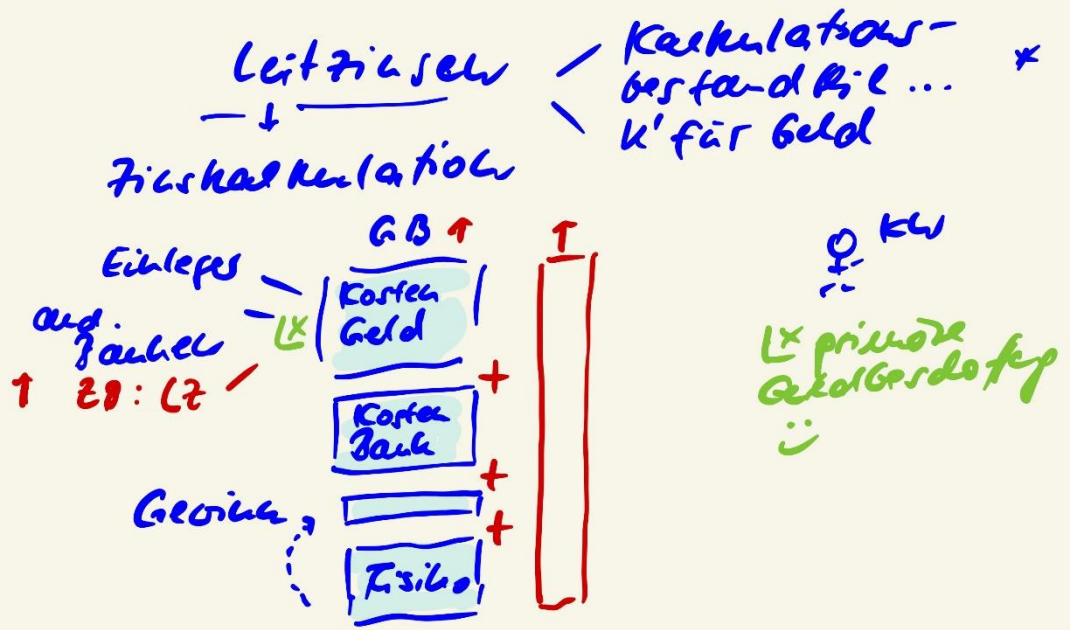 Leitzinsen
Kalkulations-
bestandteil ... *
K' für Geld
Zinskalkulation
GB ↑
↑
Einleger
and.
Banken
↑ ZB: LZ
L*
Kosten
Geld
+
Kosten
Bank
+
Gewinn
+
Risiko
L* primäre